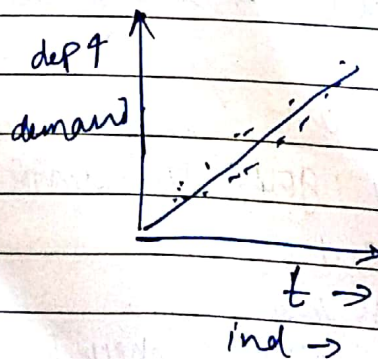 dep ↑
demand
t →
ind →